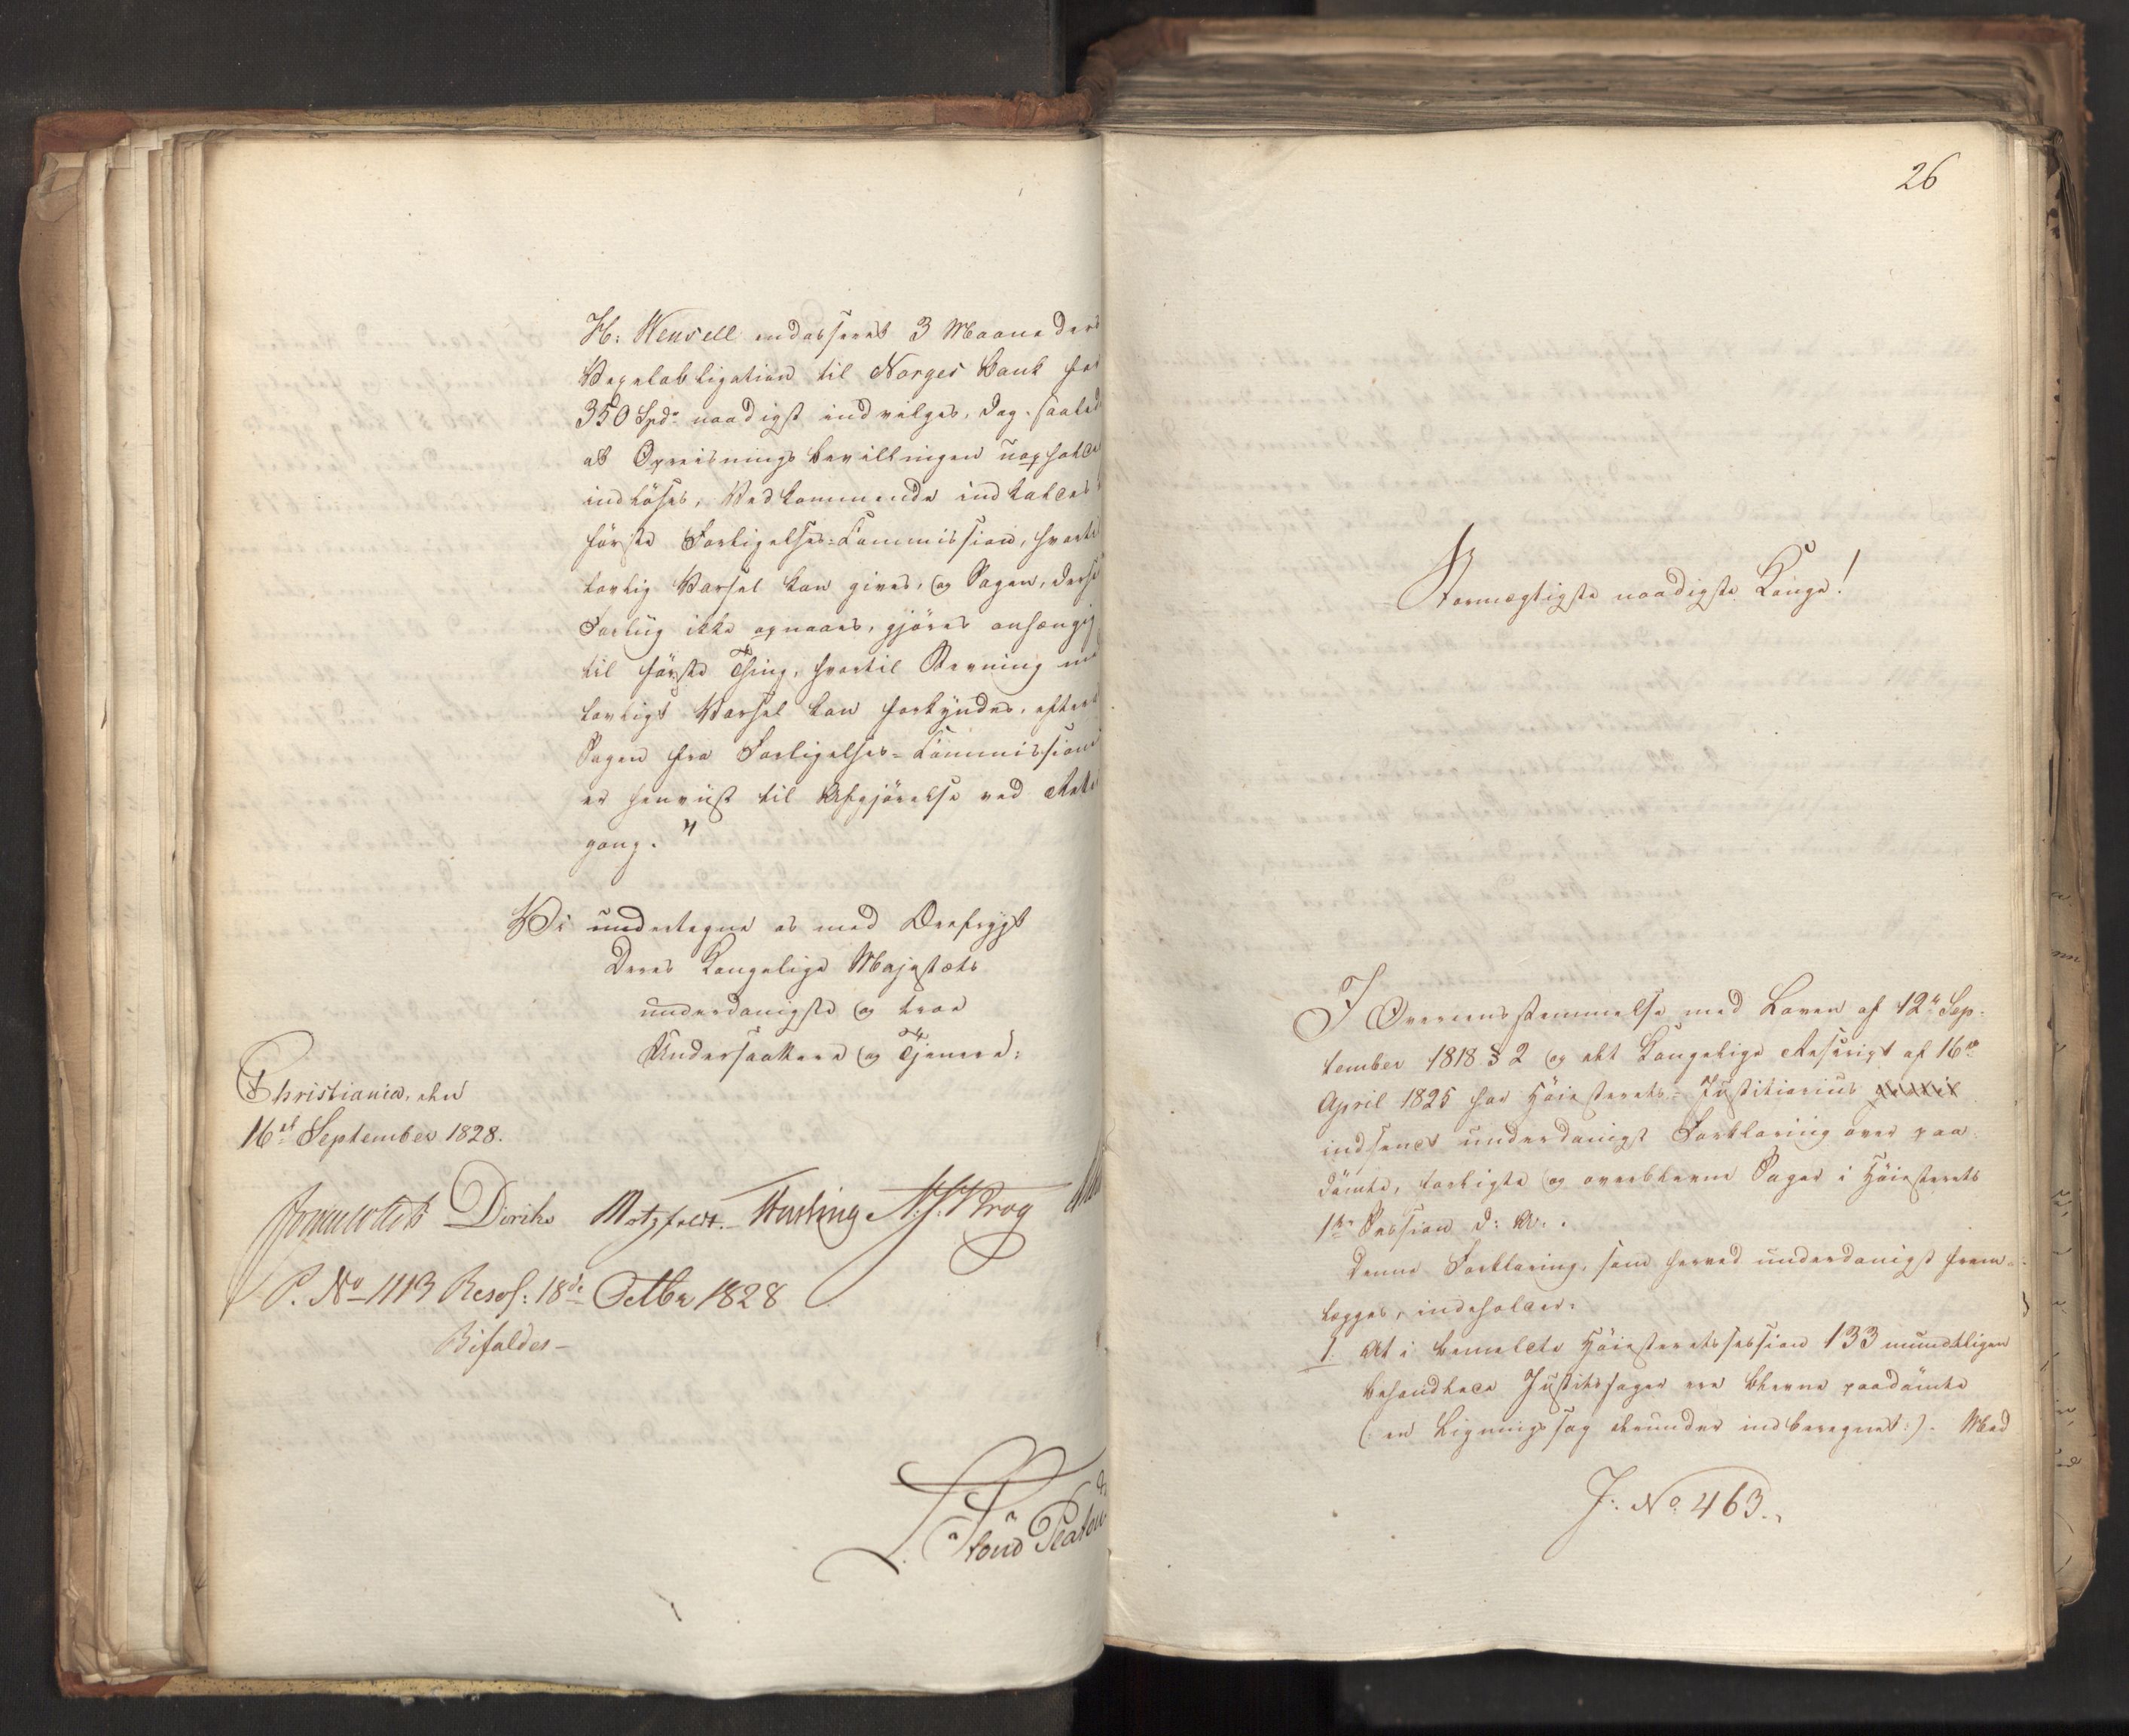 H: Wensell endosseret 3 Maaneders
Vexelobligation til Norges Bank for
350 Spd. naadigst indvilges, dog saaled
at Opreisningsbevillingen uopholde
indløses, Vedkommende indkaldes
første Forligelses-Commission, hvortil
lovlig Varsel kan gives, og Sagen, ders
Forliig ikke opnaaes, gjöres anhængig
til første Thing, hvortil Stevning med
lovligt Varsel kan forkyndes, efterat
Sagen fra Forligelses-Commissionen
er henviist til Afgjörelse ved Retter
gang."
Vi undertegne os med Ærefrygt
Deres Kongelige Majestæts
underdanigste og troe
Undersaattere og Tjenere:
Christiania, den
16de September 1828.
Diriks Motzfeldt. Hasling N. J. Krog
P. No 1113 Resol: 18de Octbr 1828
Bifaldes —
26
Stormægtigste naadigste Konge!
I Overeensstemmelse med Loven af 12te Sep-
tember 1818 § 2 og det Kongelige Rescript af 16de
April 1825 har Höiesterets-Justitiarius
indsendt underdanigst Forklaring over paa
dömte, forligte og overblevne Sager i Höiesterets
1ste Session d: A:.
Denne Forklaring, som herved underdanigst frem-
lægges, indeholder:
1. At i bemeldte Höiesteretssession 133 mundtligen
behandlede Justitssager ere blevne paadömte
(: en Ligningssag derunder indberegnet:). Med
J: No 463.